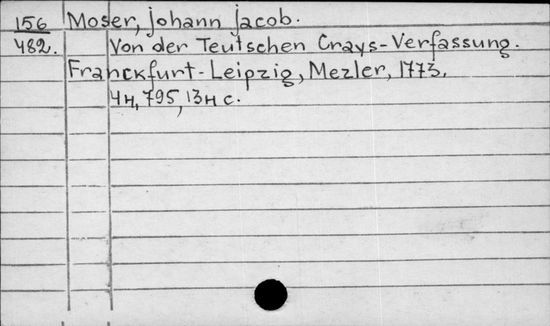 156 Moser, Johann Jacob.
482. Von der Teutschen Crays-Verfassung.
Franckfurt-Leipzig, Mezler, 1773.
4н, 795, 13н с.